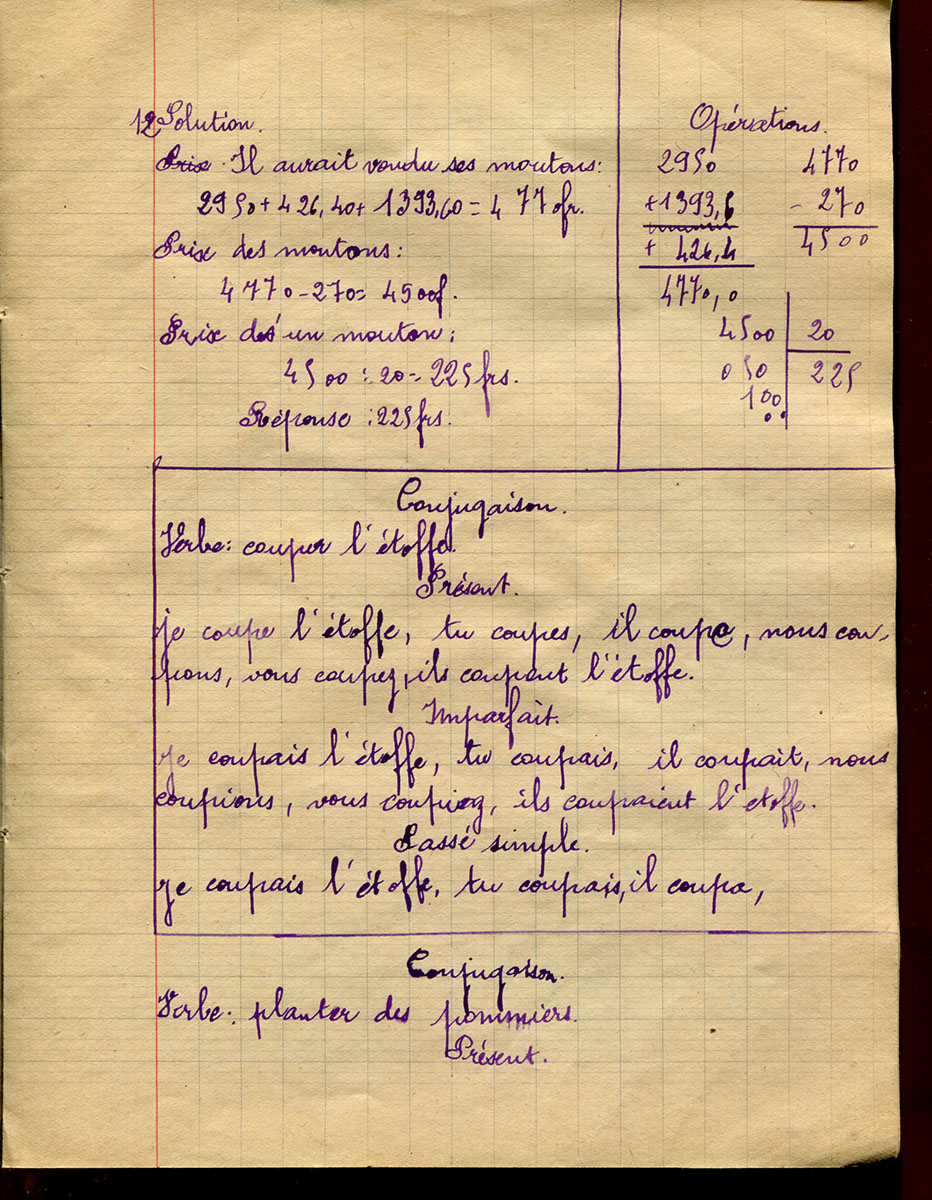 12 Solution.
Prix. Il aurait vendu ses moutons:
2950 + 426,40 + 1393,60 = 4770fr.
Prix des moutons:
4770 - 270 = 4500f.
Prix d'un mouton:
4500 : 20 = 225frs.
Réponse : 225frs.
Opérations.
2950
+1393,6
+ 426,4
4770,0
4770
- 270
4500
4500 20
050 225
100
00
Conjugaison.
Verbe: couper l'étoffe.
Présent.
je coupe l'étoffe, tu coupes, il coupe, nous cou-
pons, vous coupez, ils coupent l'étoffe.
Imparfait.
Je coupais l'étoffe, tu coupais, il coupait, nous
coupions, vous coupiez, ils coupaient l'etoffe.
Passé simple.
Je coupais l'étoffe, tu coupais, il coupa,
Conjugaison.
Verbe: planter des pommiers.
Présent.